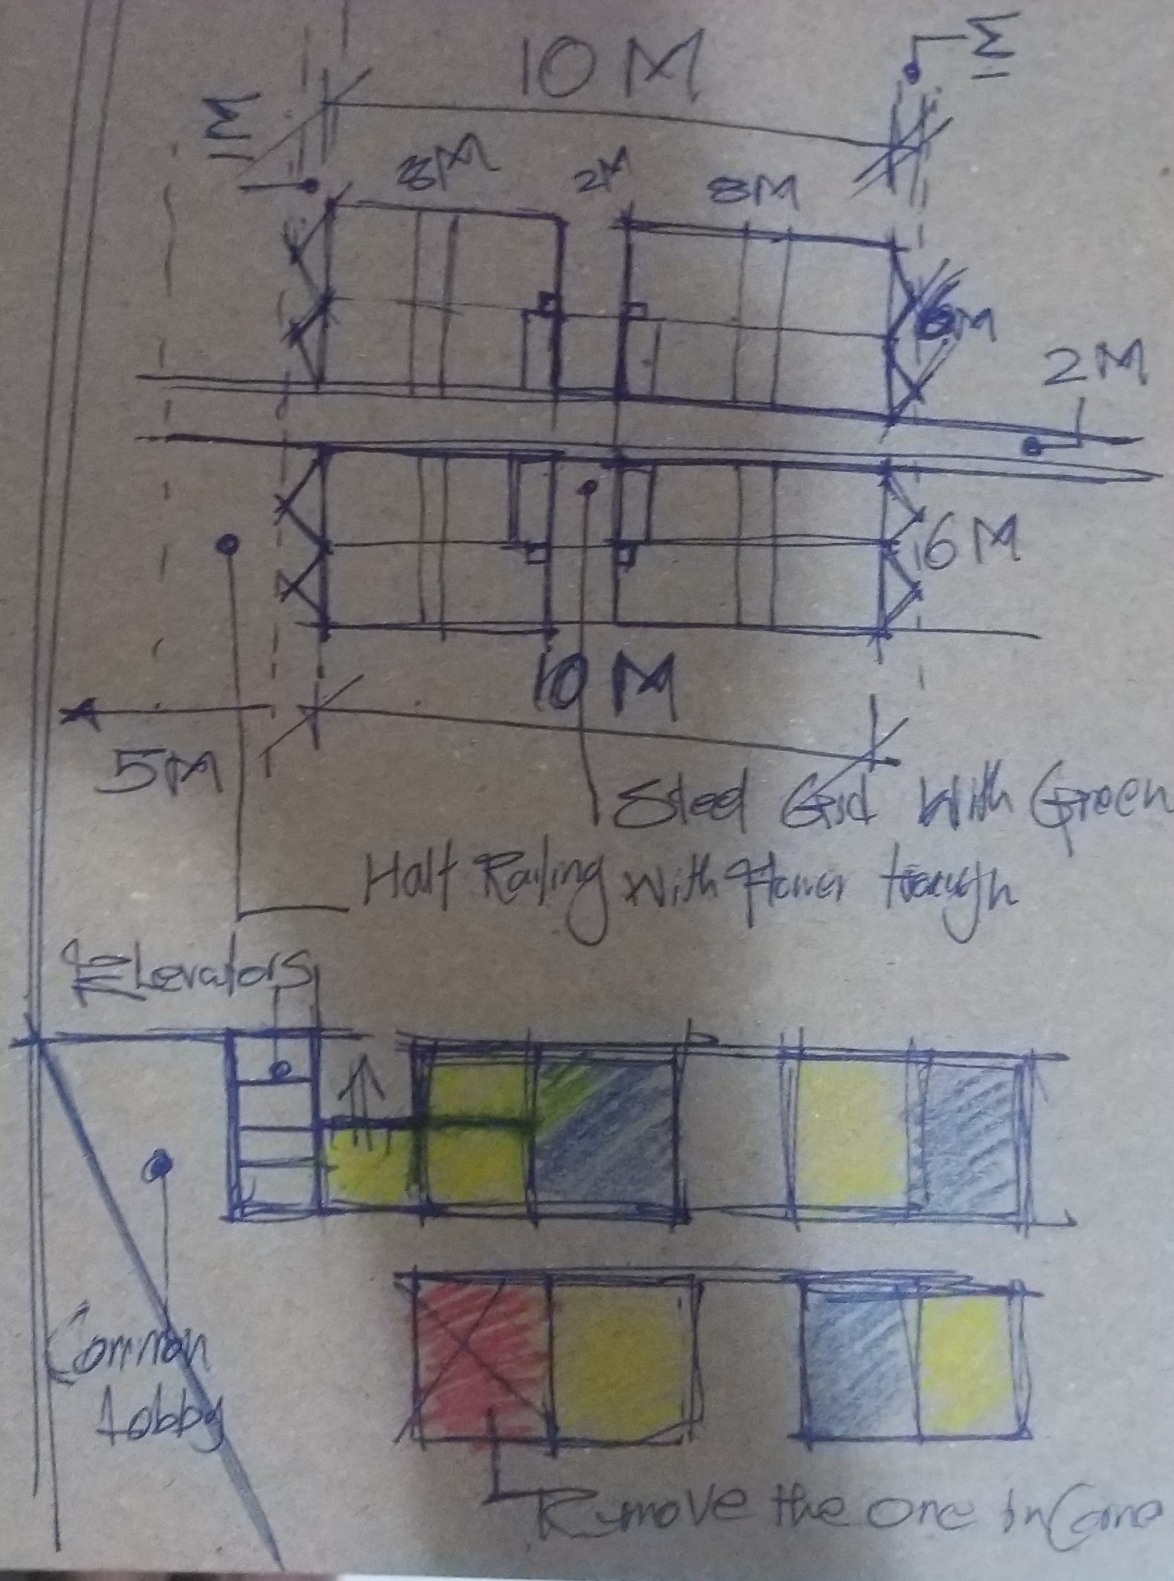 10 M
1M
1M
8M
2M
8M
6M
2M
6M
10 M
5M
Steel Grid With Green
Half Railing With Flower trough
Elevators
Common
Lobby
Remove the one in